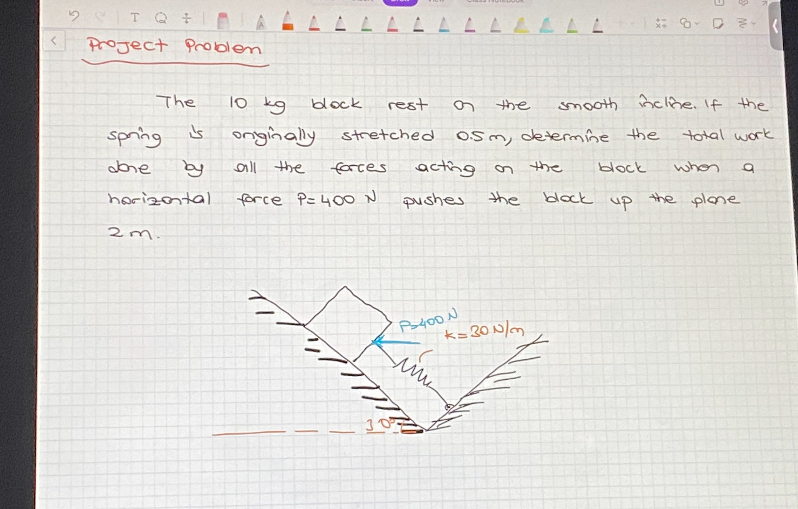 Project Problem
The 10 kg block rest on the smooth incline. If the
spring is originally stretched 0.5m, determine the total work
done by all the forces acting on the block when a
horizontal force P=400 N pushes the block up the plane
2 m.
P=400 N
k=30 N/m
30°